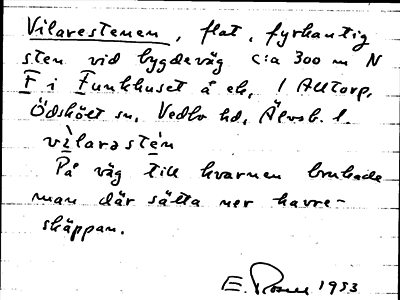 Vilarestenen, flat, fyrkantig
sten vid bygdeväg c:a 300 m N
F i Funkhuset å ek. 1 Alltorp,
Ödskölt sn, Vedbo hd, Älvsb. l.
vìlarəstén
På väg till kvarnen brukade
man där sätta ner havre-
skäppan.
E. Rosell 1953